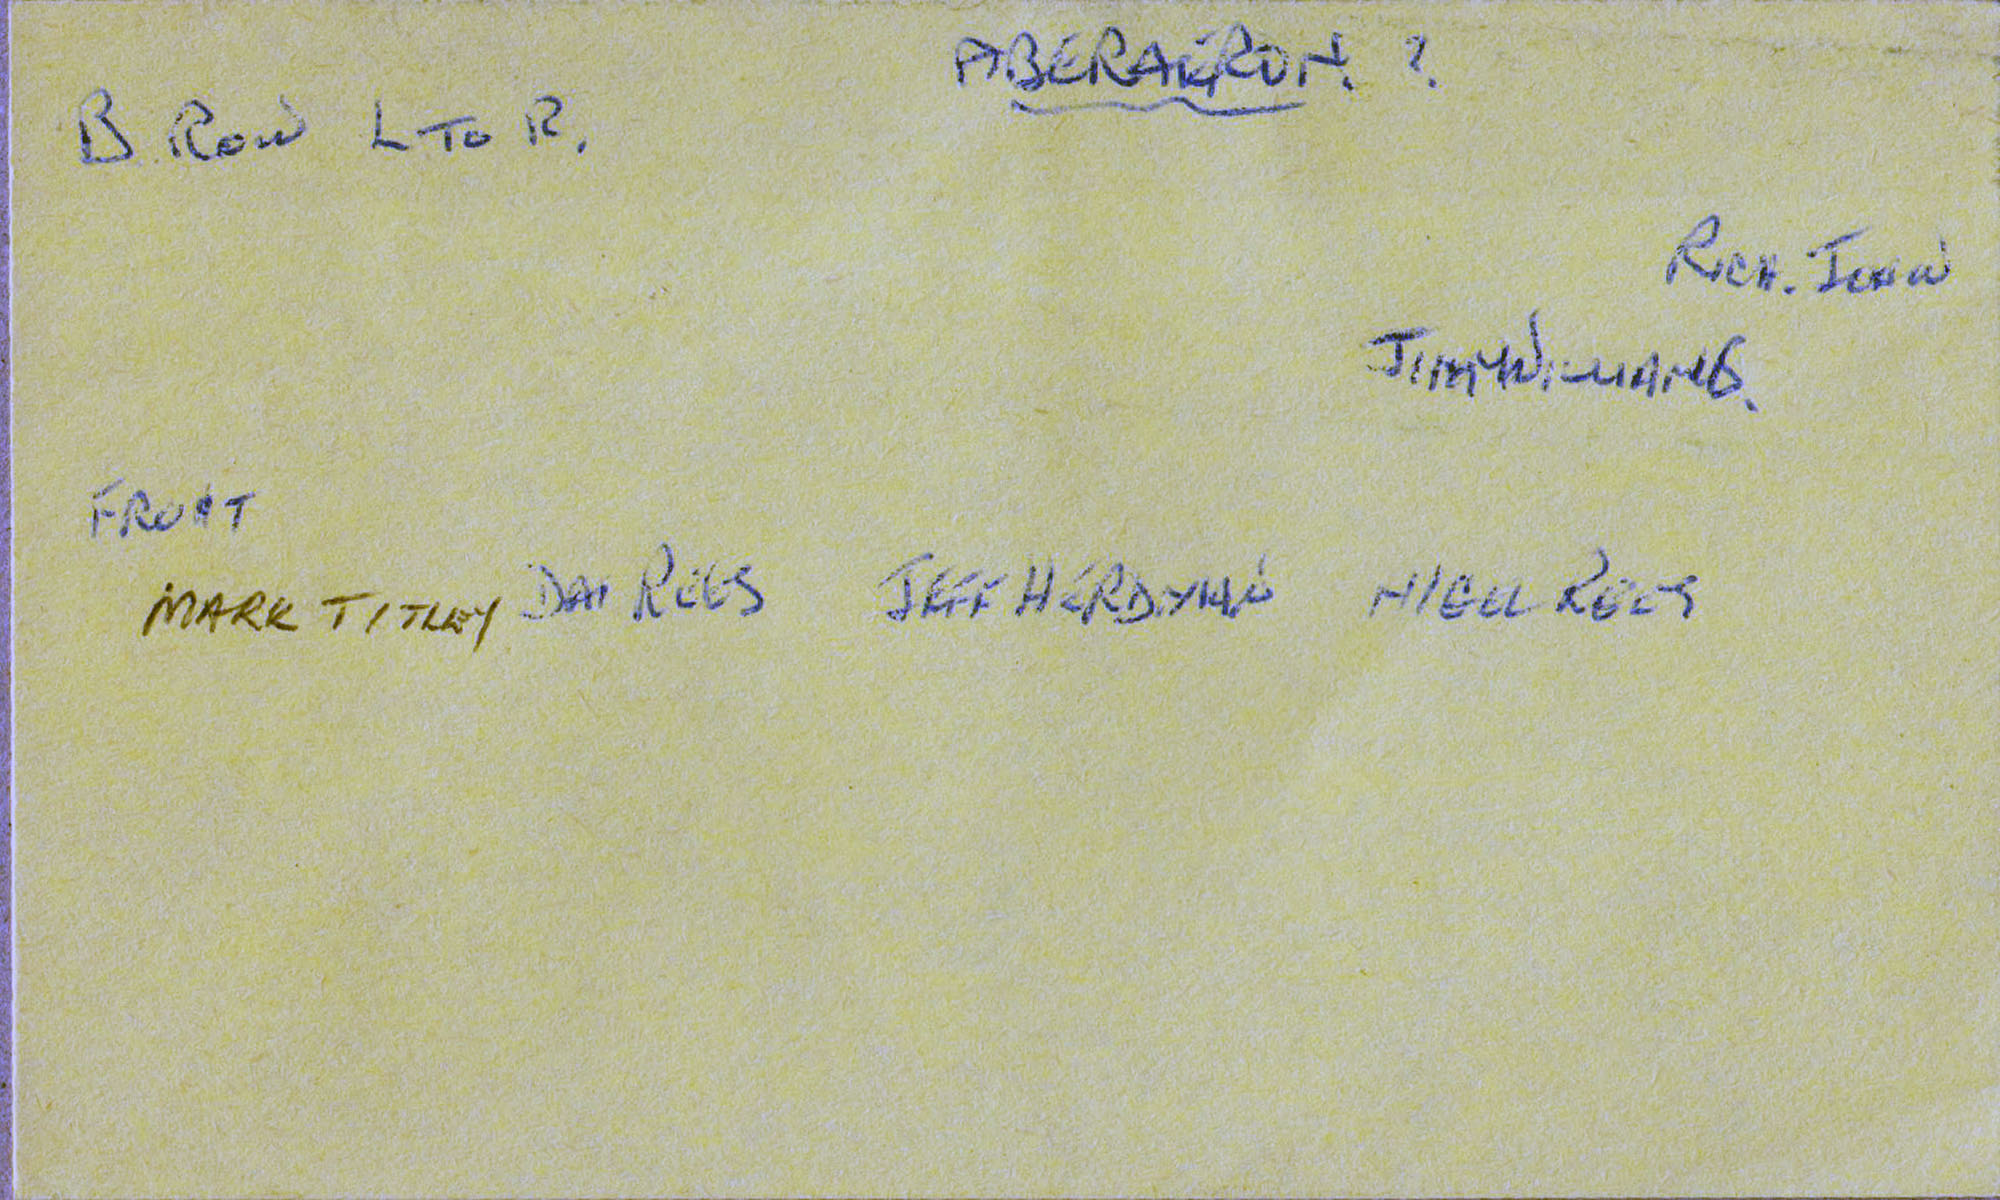 ABERAERON. ?
B ROW L TO R.
RICH. JOHN
JIMMY WILLIAMS.
FRONT
MARK TITLEY DAI REES JEFF HERDMAN NIGEL REES